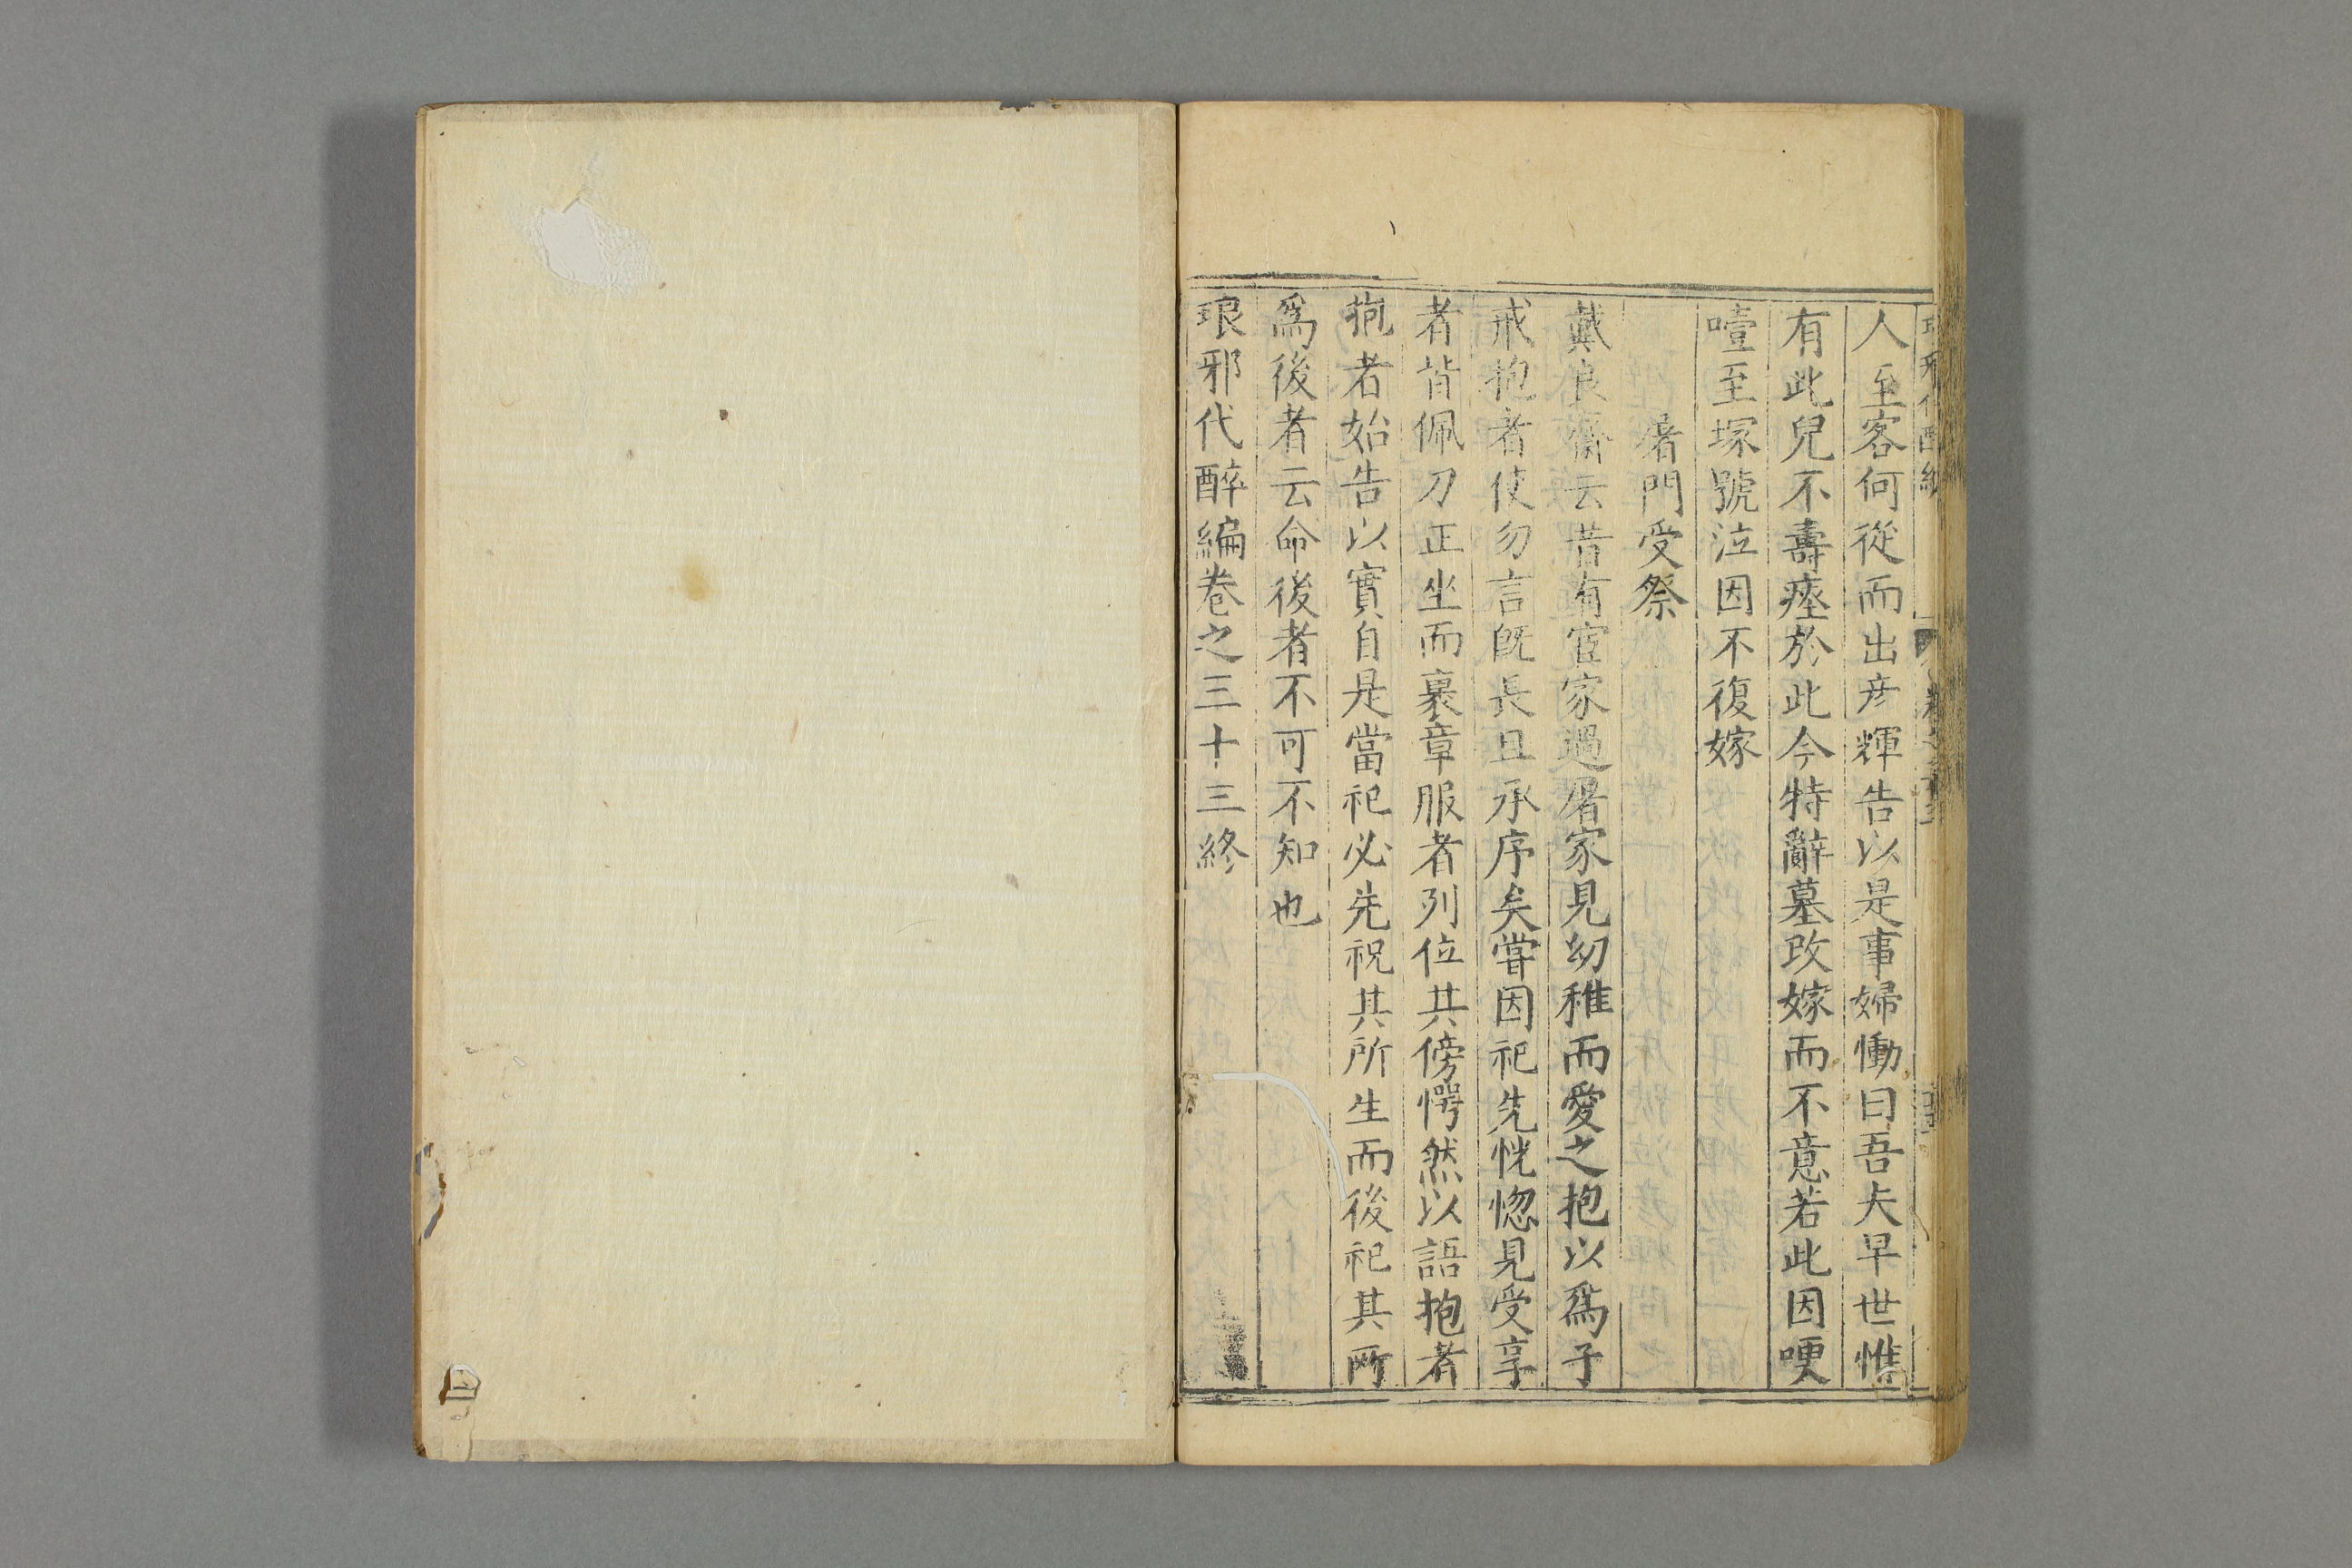 人至客何從而出彦輝告以是事婦慟曰吾夫早世惟
有此兒不壽瘞於此今特辭墓改嫁而不意若此因哽
噎至塚號泣因不復嫁
屠門受祭
戴良齋云昔有宦家過屠家見幼稚而愛之抱以爲子
戒抱者使勿言旣長且承序矣嘗因祀先恍惚見受享
者皆佩刀正坐而裹章服者列位其傍愕然以語抱者
抱者始告以實自是當祀必先祝其所生而後祀其所
爲後者云命後者不可不知也
琅邪代醉編卷之三十三終